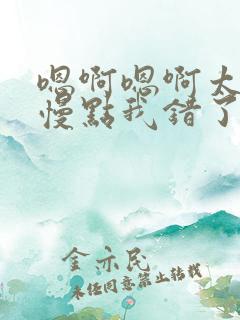 嗯啊嗯啊大
慢點我错了
金亦民
未经同意禁止转载